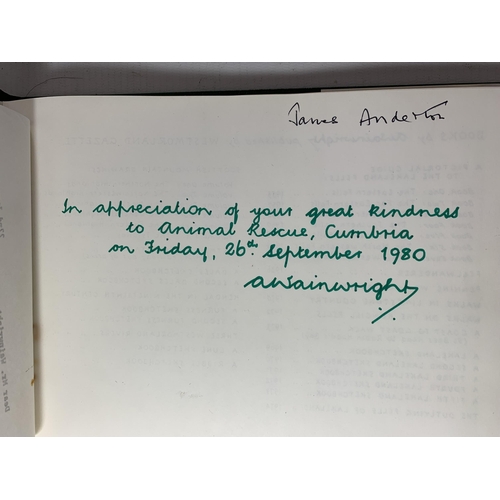 James Anderton
In appreciation of your great kindness
to Animal Rescue, Cumbria
on Friday, 26th September 1980
AWainwright